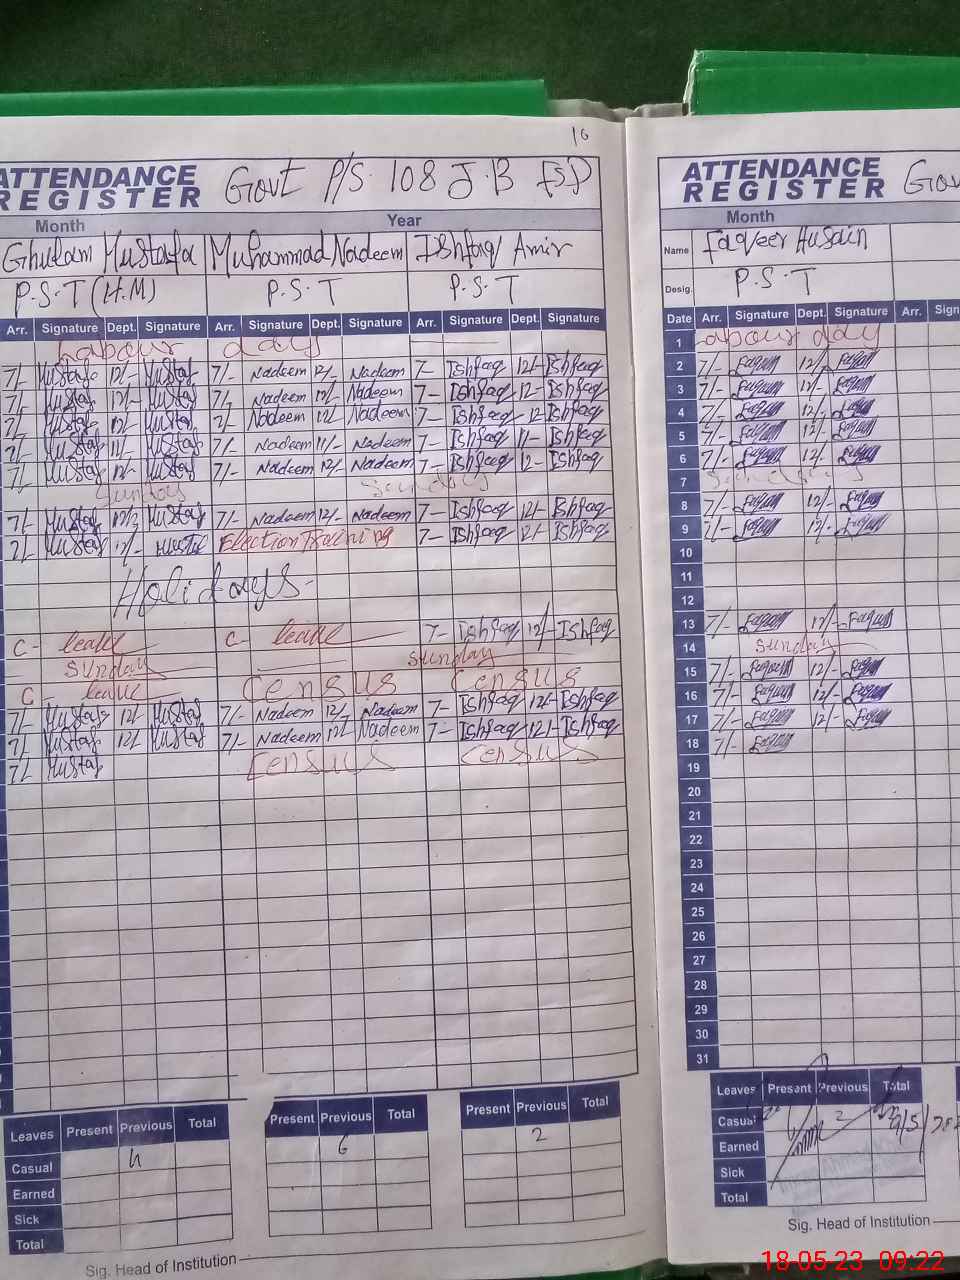 16
ATTENDANCE REGISTER Govt P/S 108 J.B FSD
Month Year
Ghulam Mustafa Muhammad Nadeem Ishfaq Amir
P.S.T (H.M) P.S.T P.S.T
Arr. Signature Dept. Signature Arr. Signature Dept. Signature Arr. Signature Dept. Signature
Labour day
7/- Mustaf 12/- Mustaf 7/- Nadeem 12/- Nadeem 7- Ishfaq 12/- Ishfaq
7/- Mustaf 12/- Mustaf 7/- Nadeem 12/- Nadeem 7- Ishfaq 12- Ishfaq
7/- Mustaf 12/- Mustaf 7/- Nadeem 12/- Nadeem 7- Ishfaq 12- Ishfaq
7/- Mustaf 11/- Mustaf 7/- Nadeem 11/- Nadeem 7- Ishfaq 11- Ishfaq
7/- Mustaf 12/- Mustaf 7/- Nadeem 12/- Nadeem 7- Ishfaq 12- Ishfaq
Sunday Sunday
7/- Mustaf 12/- Mustaf 7/- Nadeem 12/- Nadeem 7- Ishfaq 12/- Ishfaq
7/- Mustaf 12/- Mustaf Election Training 7- Ishfaq 12/- Ishfaq
Holidays-
C- leave C- leave 7- Ishfaq 12/- Ishfaq
Sunday Sunday
C leave Census Census
7/- Mustaf 12/- Mustaf 7/- Nadeem 12/- Nadeem 7- Ishfaq 12/- Ishfaq
7/- Mustaf 12/- Mustaf 7/- Nadeem 12/- Nadeem 7- Ishfaq 12/- Ishfaq
7/- Mustaf Census Census
Leaves Present Previous Total Present Previous Total Present Previous Total
Casual 4 6 2
Earned
Sick
Total
Sig. Head of Institution
ATTENDANCE REGISTER Gov
Month
Name Faqeer Husain
Desig. P.S.T
Date Arr. Signature Dept. Signature Arr. Sign
1 Labour day
2 7/- Faqeer 12/- Faqeer
3 7/- Faqeer 12/- Faqeer
4 7/- Faqeer 12/- Faqeer
5 7/- Faqeer 12/- Faqeer
6 7/- Faqeer 12/- Faqeer
7 Sunday
8 7/- Faqeer 12/- Faqeer
9 7/- Faqeer 12/- Faqeer
10
11
12
13 7/- Faqeer 12/- Faqeer
14 Sunday
15 7/- Faqeer 12/- Faqeer
16 7/- Faqeer 12/- Faqeer
17 7/- Faqeer 12/- Faqeer
18 7/- Faqeer
19
20
21
22
23
24
25
26
27
28
29
30
31
Leaves Present Previous Total
Casual 2
Earned
Sick
Total
Sig. Head of Institution
18-05-23 09:22